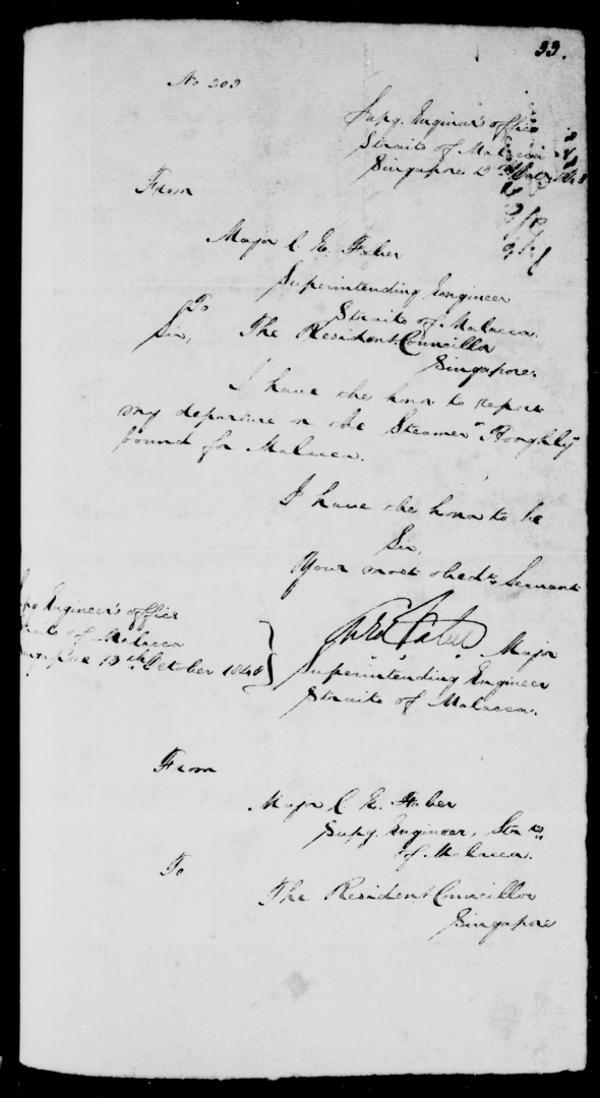 33.
No 203
Supg. Engineer's office
Straits of Malacca
Singapore 13th
From
Major C. E. Faber
Superintending Engineer
Straits of Malacca.
To
Sir, The Resident Councillor
Singapore.
I have the honor to report
my departure on the Steamer "Hooghly"
bound for Malacca.
I have the honor to be
Sir,
Your most obedt. Servant
Engineer's office
of Malacca
13th October 1848
Major
Superintending Engineer
Straits of Malacca.
From
Major C. E. Faber
Supg. Engineer, Straits
of Malacca.
To
The Resident Councillor
Singapore